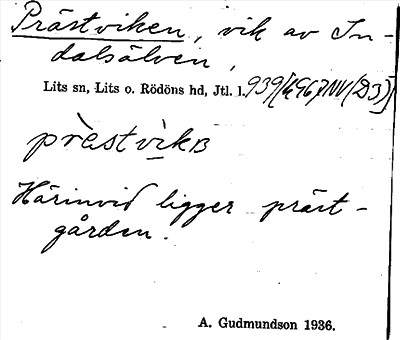 Prästviken, vik av In-
dalsälven,
Lits sn, Lits o. Rödöns hd, Jtl. l.
prestvikB
Härinvid ligger präst-
gården.
A. Gudmundson 1936.